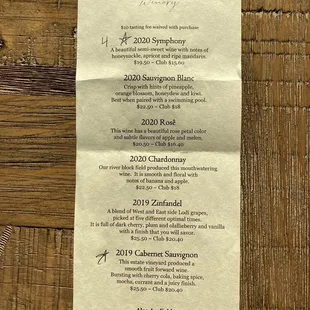 Winery
$10 tasting fee waived with purchase
4 ☆ 2020 Symphony
A beautiful semi-sweet wine with notes of
honeysuckle, apricot and ripe mandarin.
$19.50 – Club $15.60
2020 Sauvignon Blanc
Crisp with hints of pineapple,
orange blossom, honeydew and kiwi.
Best when paired with a swimming pool.
$22.50 – Club $18
2020 Rosê
This wine has a beautiful rose petal color
and subtle flavors of apple and melon.
$20.50 – Club $16.40
2020 Chardonnay
Our river block field produced this mouthwatering
wine. It is smooth and floral with
notes of banana and apple.
$22.50 – Club $18
2019 Zinfandel
A blend of West and East side Lodi grapes,
picked at five different optimal times.
It is full of dark cherry, plum and olallieberry and vanilla
with a finish that you will savor.
$25.50 – Club $20.40
☆ 2019 Cabernet Sauvignon
This estate vineyard produced a
smooth fruit forward wine.
Bursting with cherry cola, baking spice,
mocha, currant and a juicy finish.
$25.50 – Club $20.40